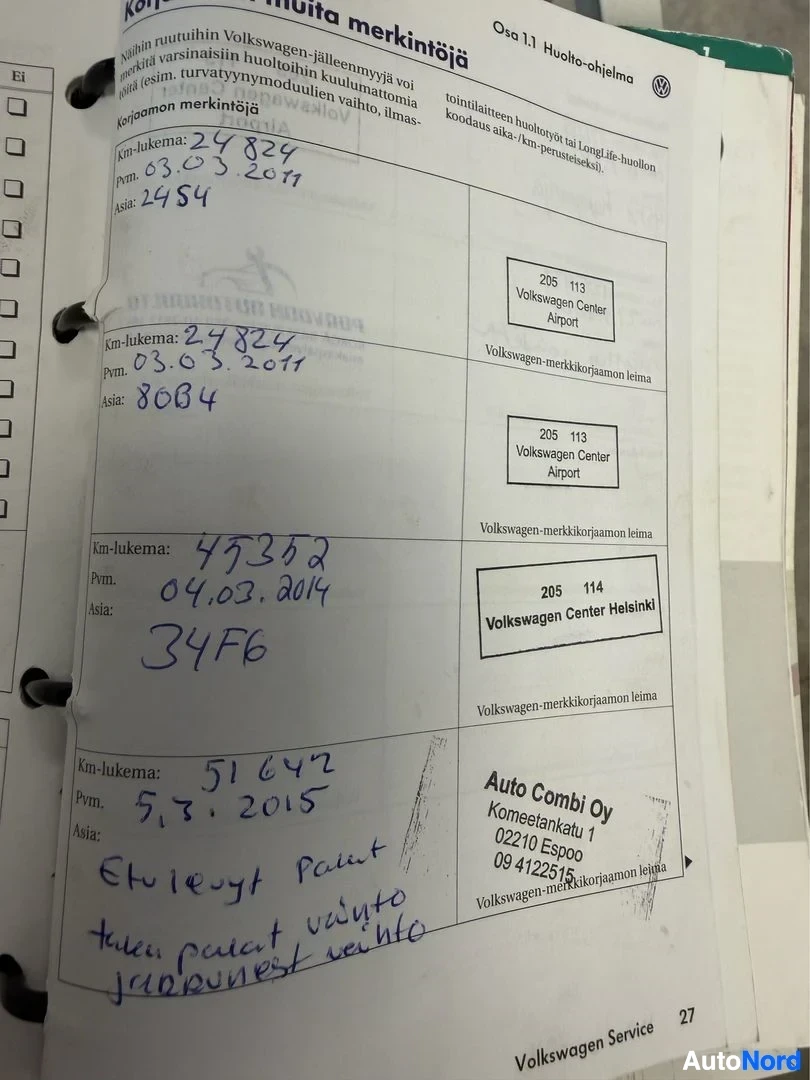 Ei
muita merkintöjä
Osa 1.1 Huolto-ohjelma
Näihin ruutuihin Volkswagen-jälleenmyyjä voi
merkitä varsinaisiin huoltoihin kuulumattomia
töitä (esim. turvatyynymoduulien vaihto, ilmas-
tointilaitteen huoltotyöt tai LongLife-huollon
koodaus aika-/km-perusteiseksi).
Korjaamon merkintöjä
Km-lukema: 24 824
Pvm. 03.03.2011
Asia: 24S4
205 113
Volkswagen Center
Airport
Volkswagen-merkkikorjaamon leima
Km-lukema: 24 824
Pvm. 03.03.2011
Asia: 80B4
205 113
Volkswagen Center
Airport
Volkswagen-merkkikorjaamon leima
Km-lukema: 45352
Pvm. 04.03.2014
Asia:
34F6
205 114
Volkswagen Center Helsinki
Volkswagen-merkkikorjaamon leima
Km-lukema: 51 642
Pvm. 5.3.2015
Asia:
Etu levyt Palat
taka palat vaihto
vaihto
Auto Combi Oy
Komeetankatu 1
02210 Espoo
09 4122515
Volkswagen-merkkikorjaamon leima
Volkswagen Service 27
AutoNord